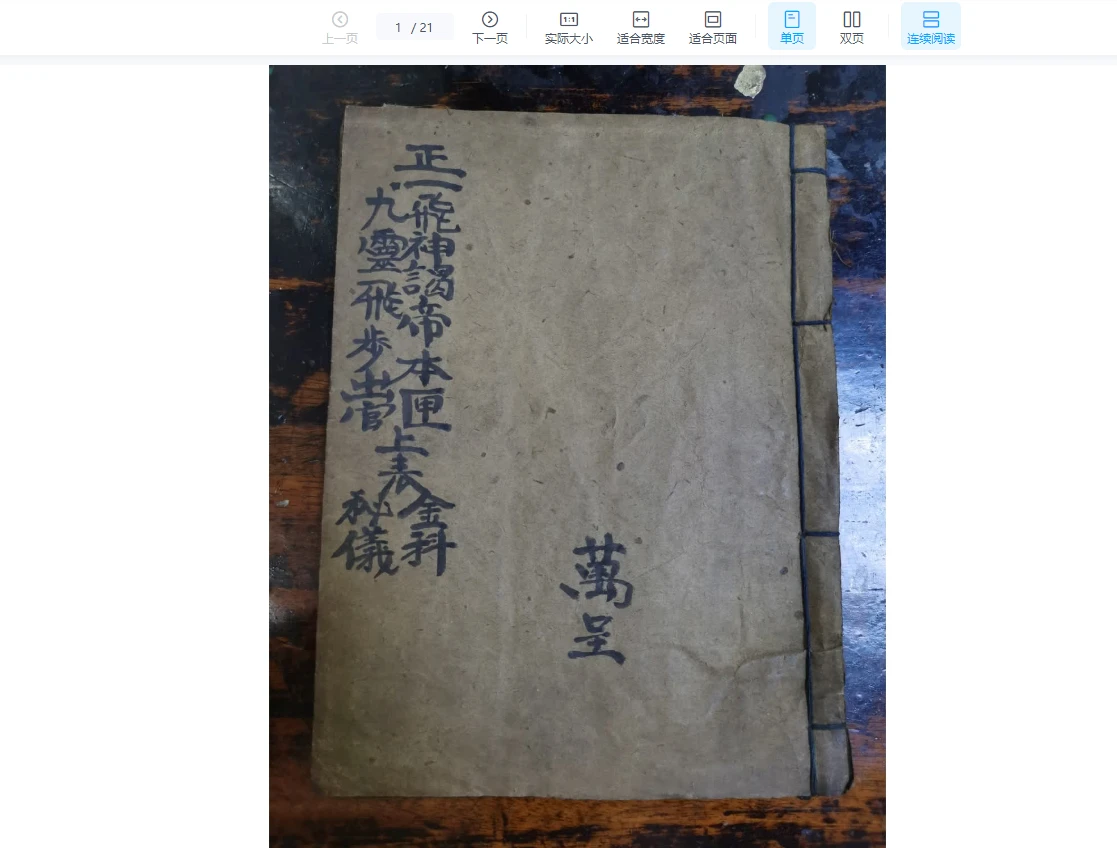 上一页
1 / 21
下一页
实际大小
适合宽度
适合页面
单页
双页
连续阅读
萬呈
正一飛神謁帝本匣上表金科
九靈飛步營秘儀